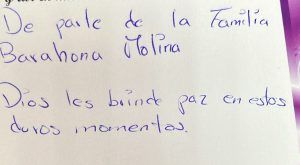 De parte de la Familia
Barahona Molina
Dios les brinde paz en estos
duros momentos.